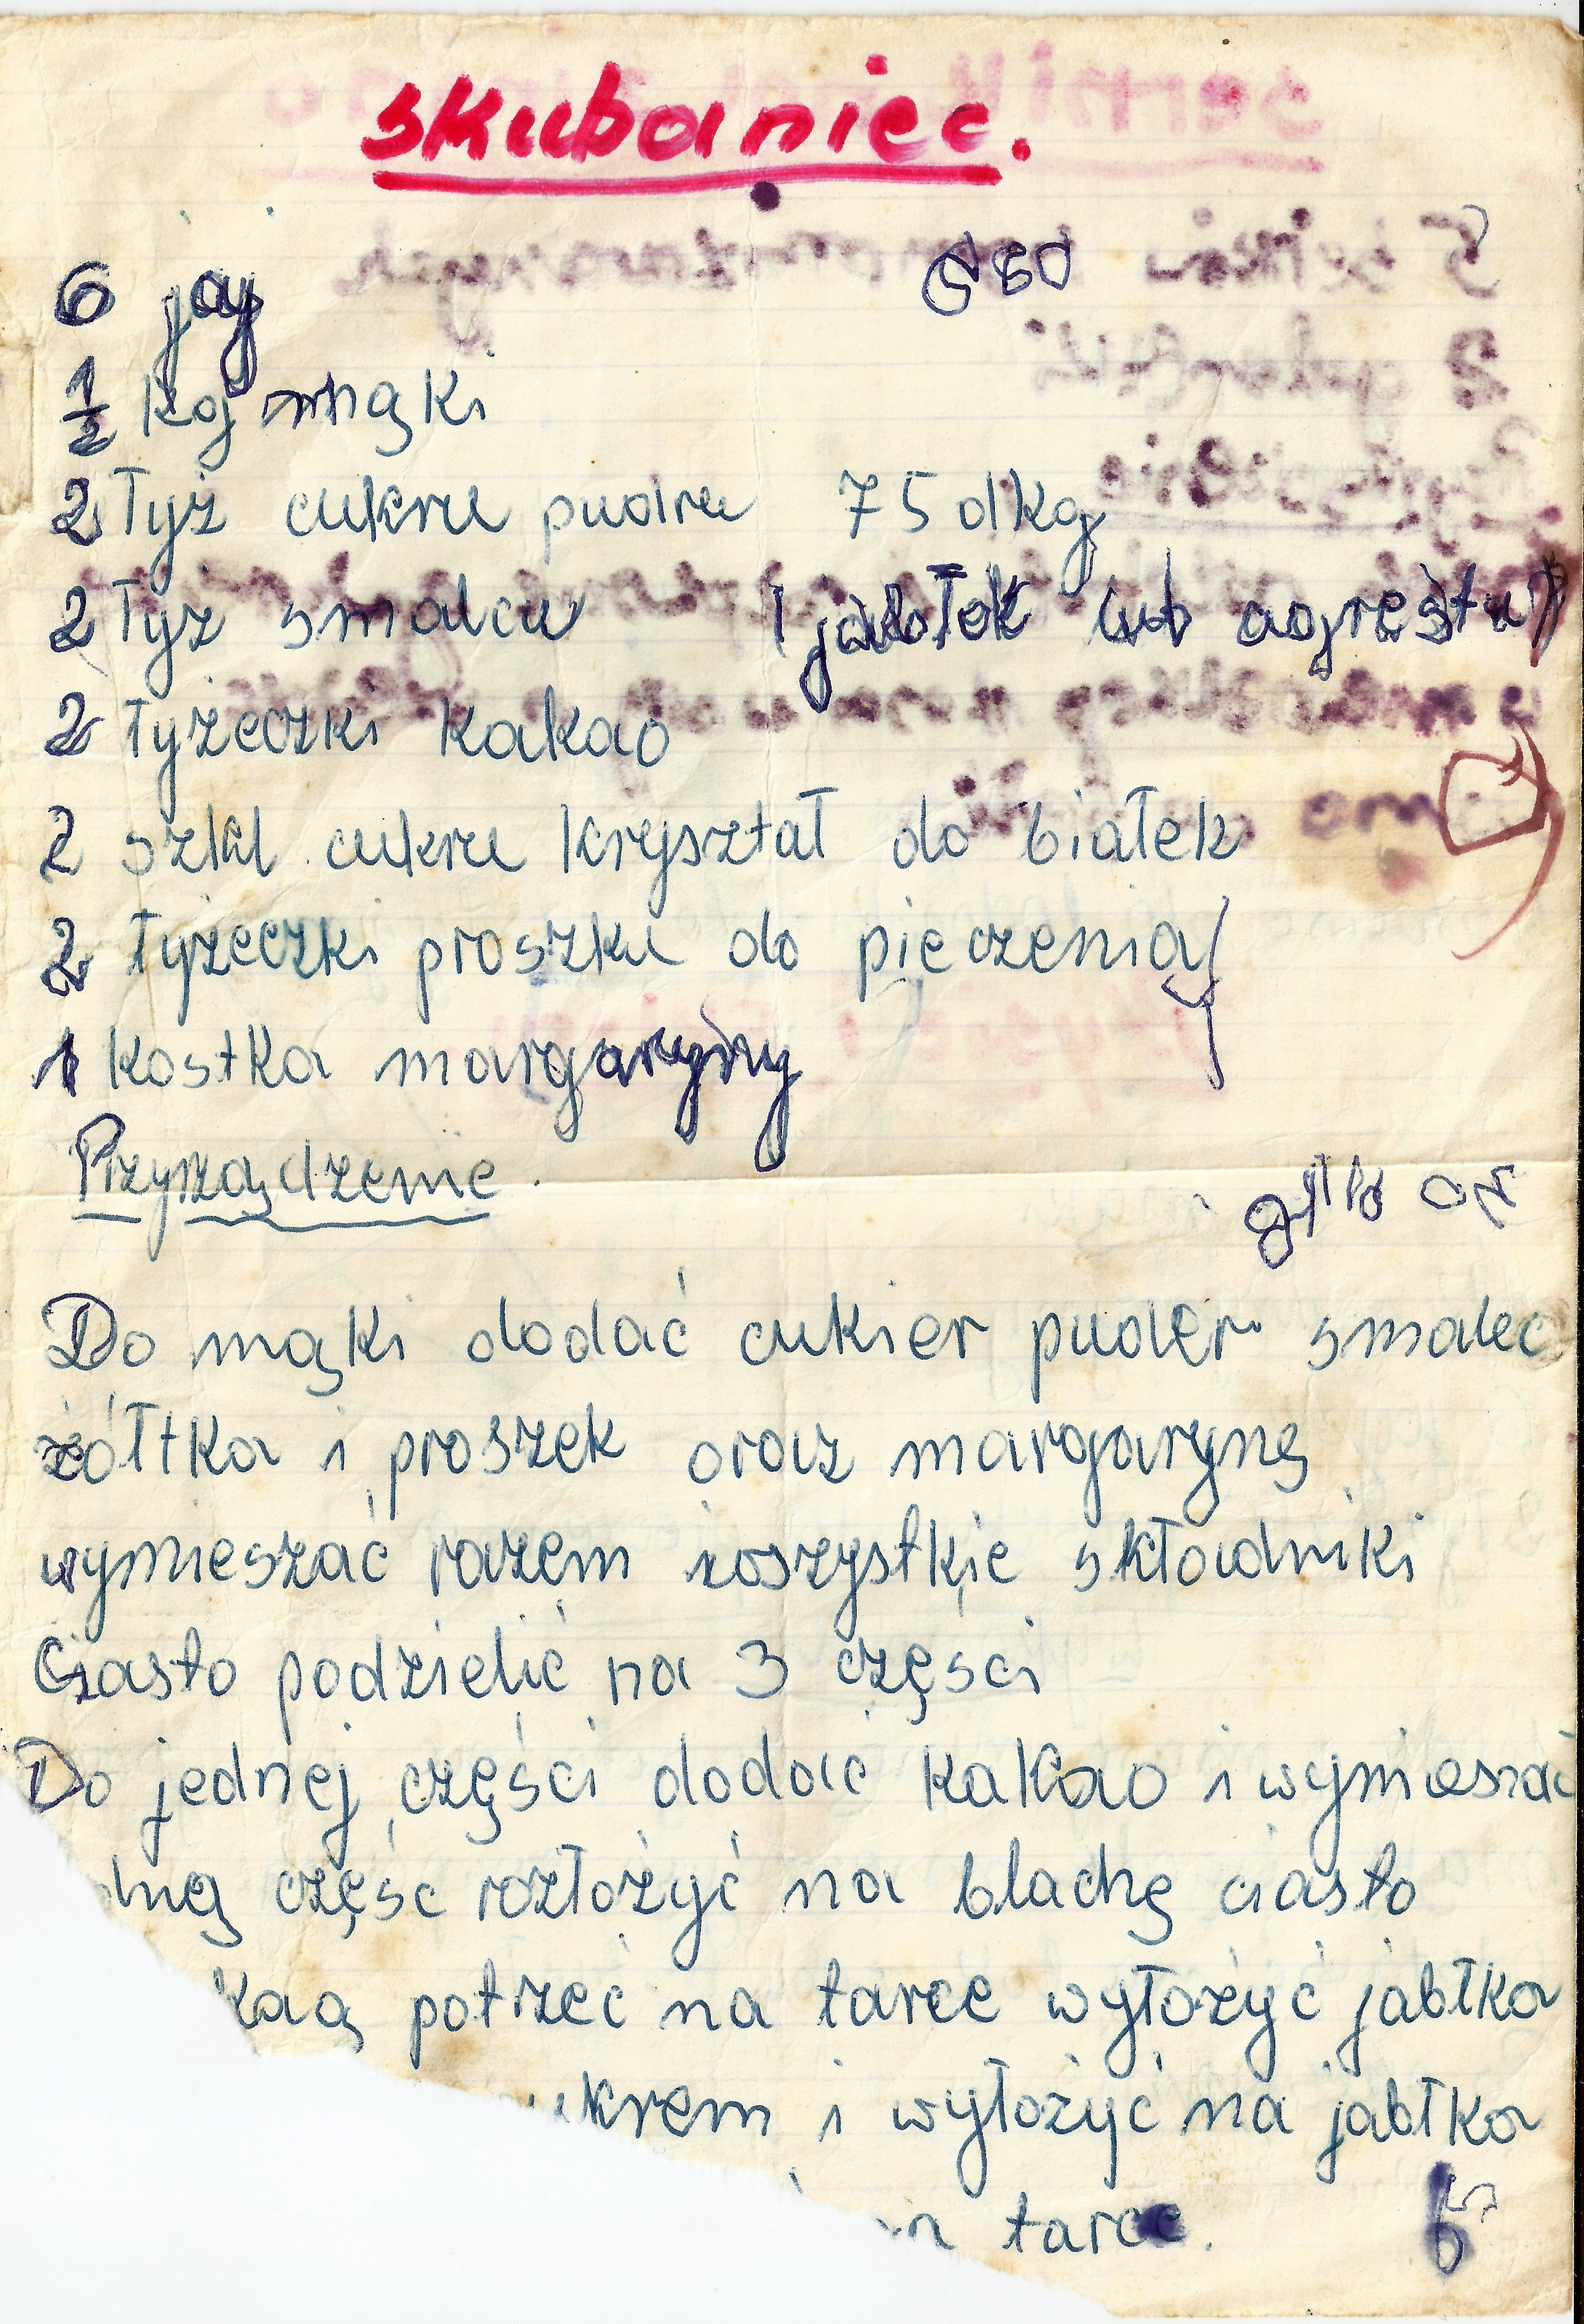 skubaniec.
6 jaj
1/2 kg mąki
2 łyż cukru pudru 75 dkg
2 łyż smalcu (jabłek lub agrestu)
2 łyżeczki kakao
2 szkl. cukru kryształ do białek
2 łyżeczki proszku do pieczenia
1 kostka margaryny
Przyrządzenie.
Do mąki dodać cukier puder smalec
żółtka i proszek oraz margarynę
wymieszać razem wszystkie składniki
Ciasto podzielić na 3 części
Do jednej części dodać kakao i wymieszać
część rozłożyć na blachę ciasto
potrzeć na tarce wyłożyć jabłka
i wyłożyć na jabłka
tarce.